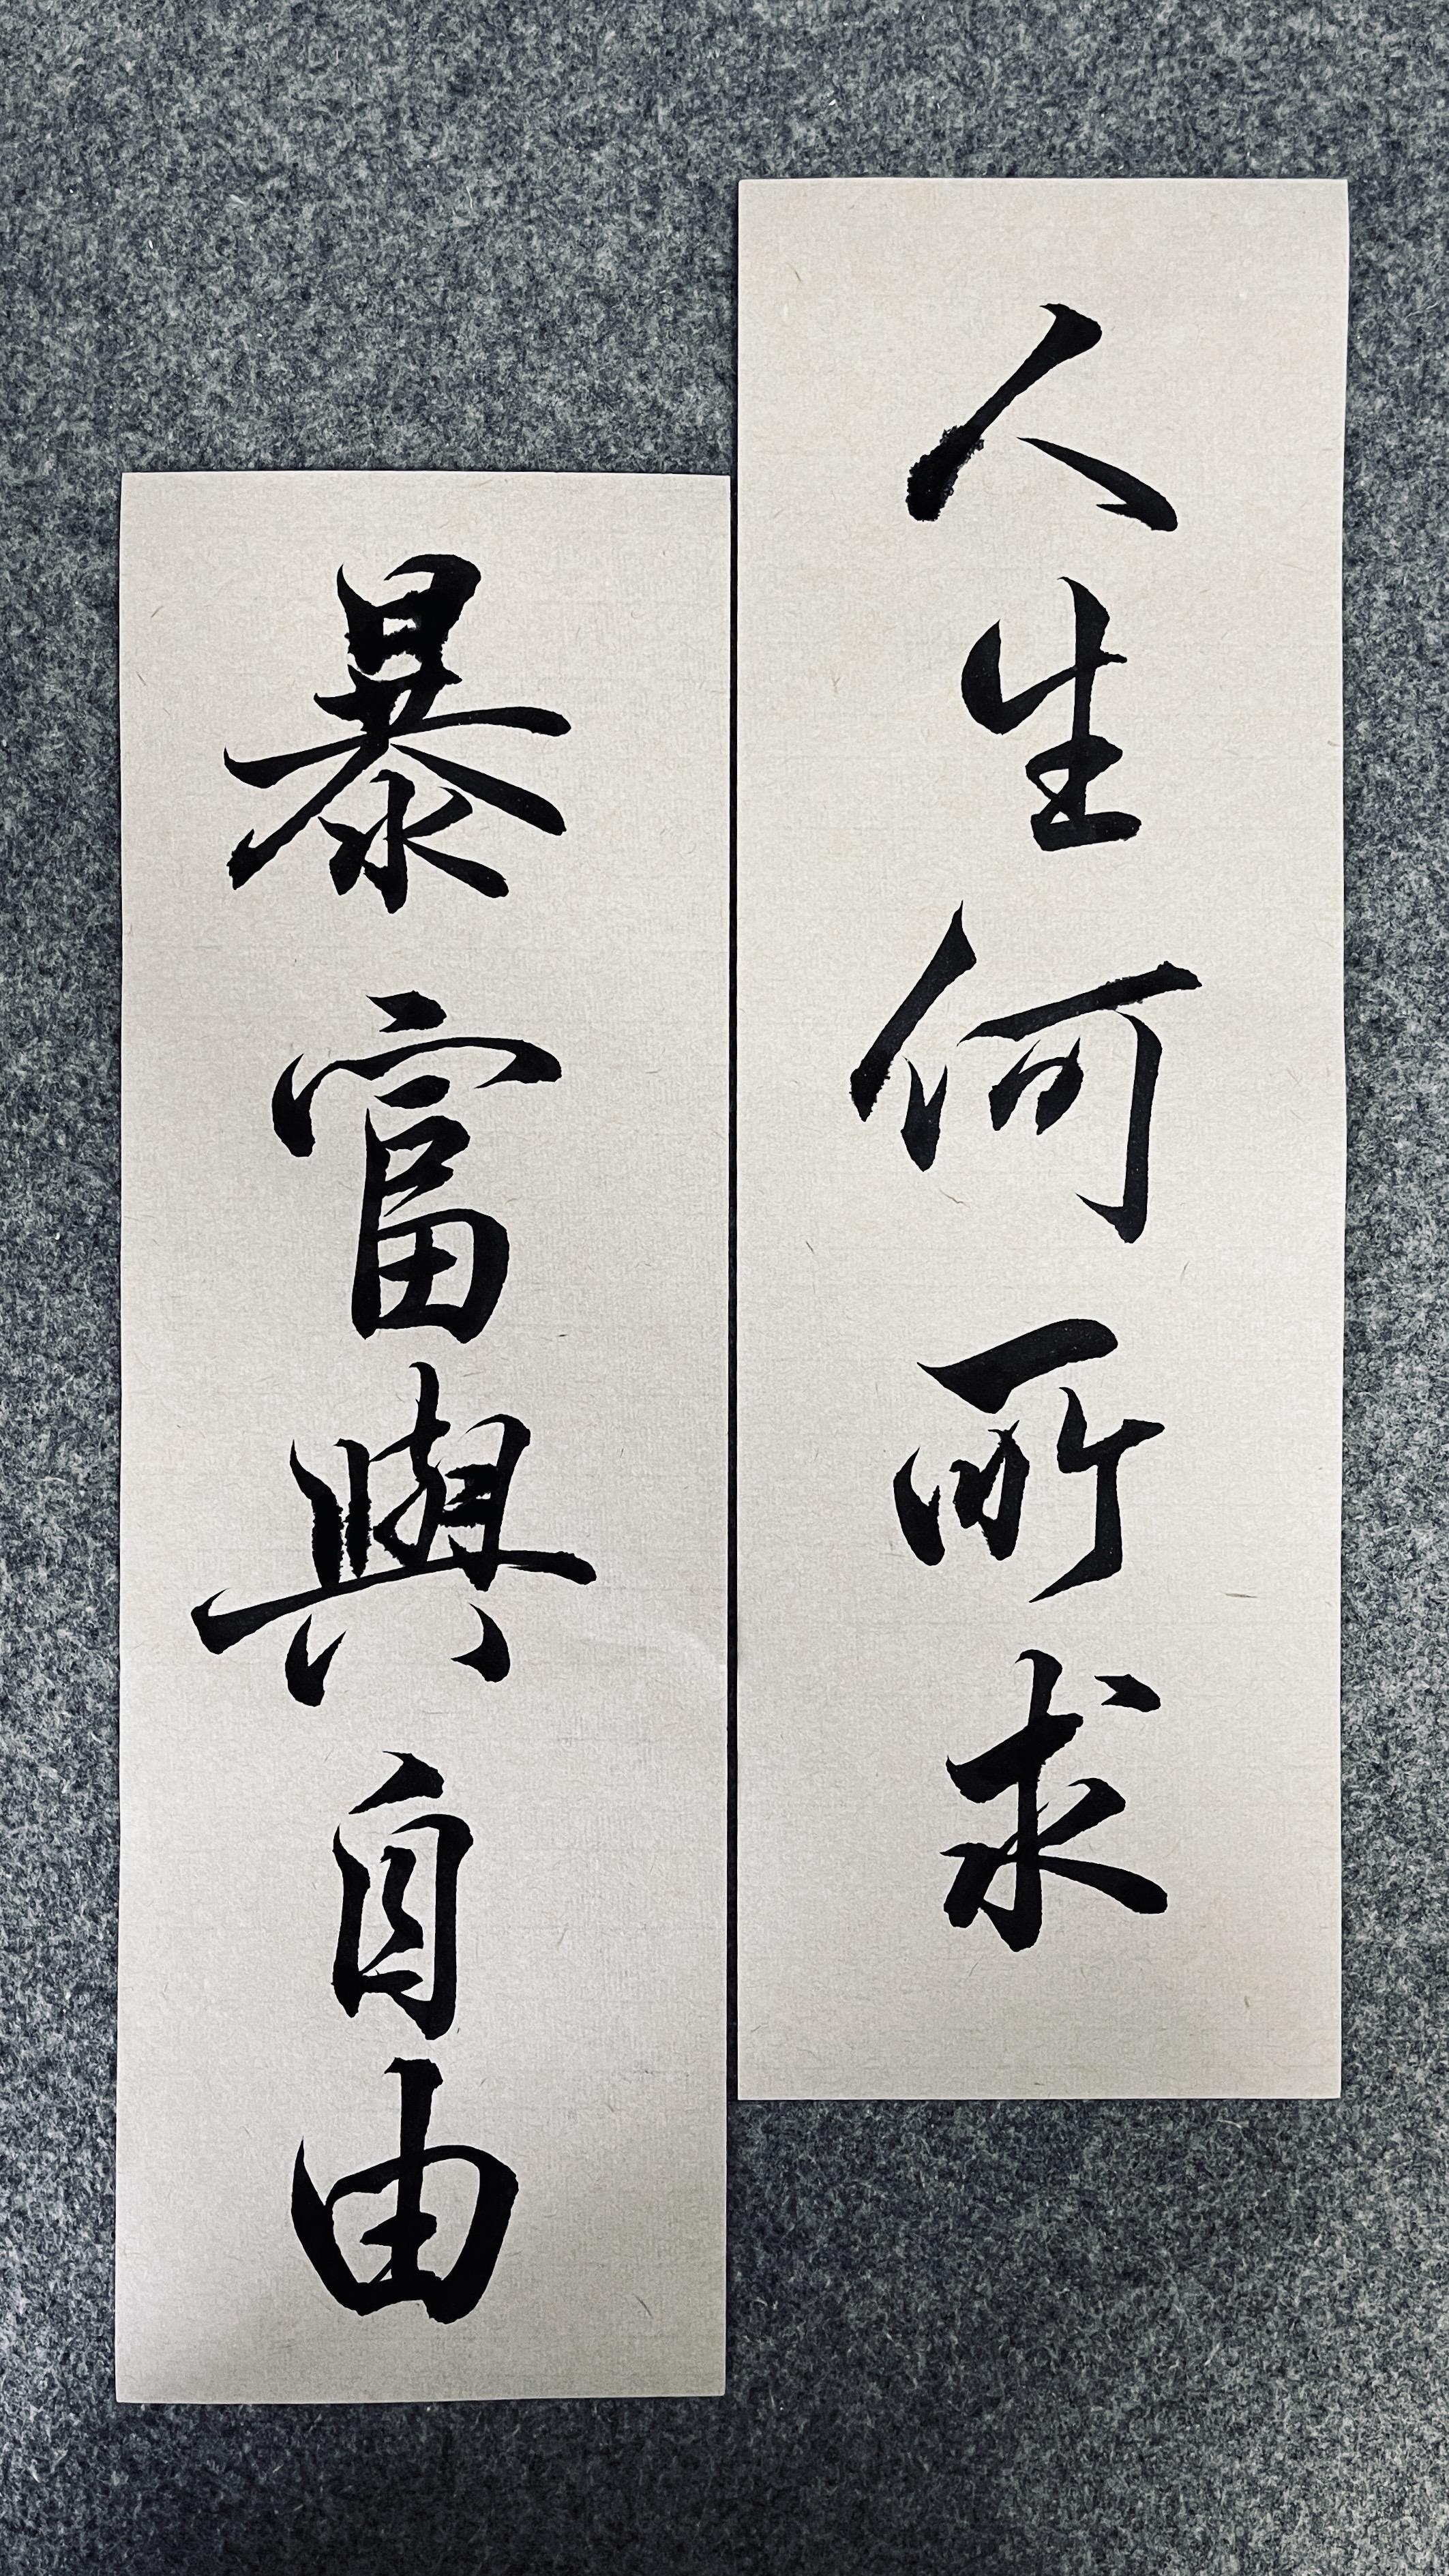 人生何所求
暴富與自由